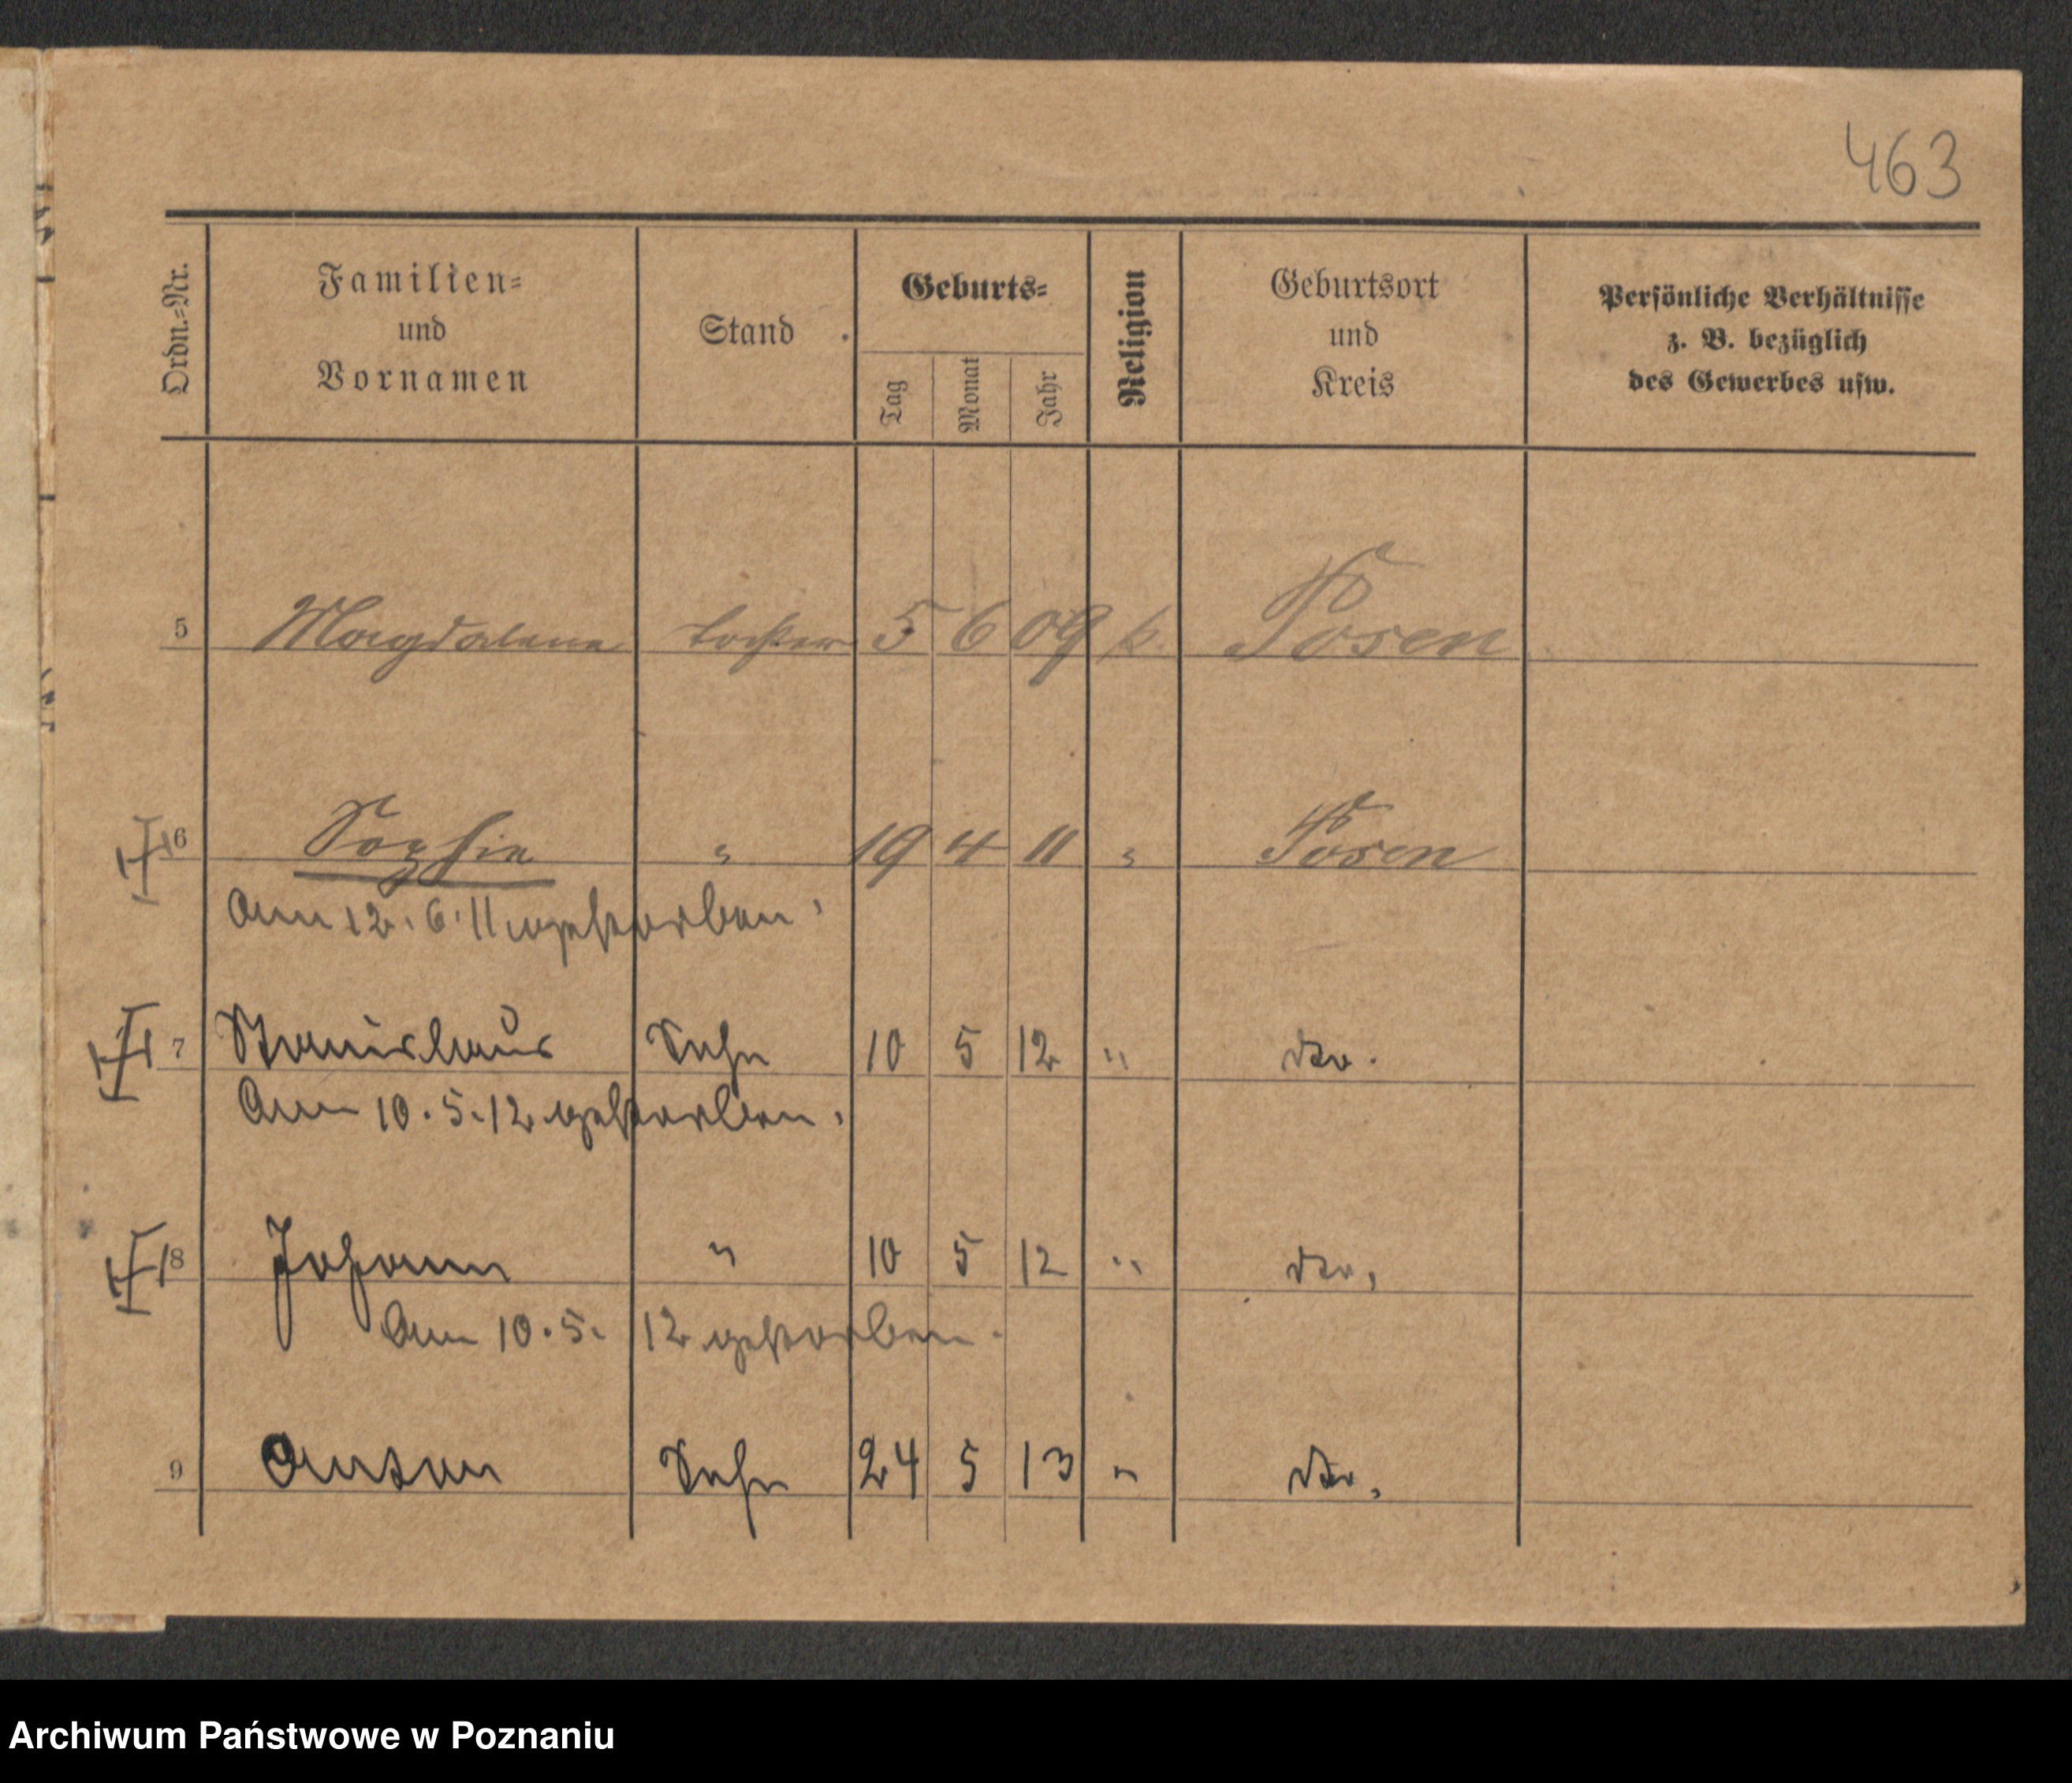 463
Ordn.-Nr.
Familien-
und
Vornamen
Stand
Geburts-
Tag
Monat
Jahr
Religion
Geburtsort
und
Kreis
Persönliche Verhältnisse
z. B. bezüglich
des Gewerbes usw.
5 Magdalena Tochter 5 6 09 k. Posen
6 Sophie " 19 4 11 " Posen
Am 12.6.11 gestorben.
7 Stanislaus Sohn 10 5 12 " dto.
Am 10.5.12 gestorben.
8 Johann " 10 5 12 " dto.
Am 10.5.12 gestorben.
9 Anton Sohn 24 5 13 " dto.
Archiwum Państwowe w Poznaniu